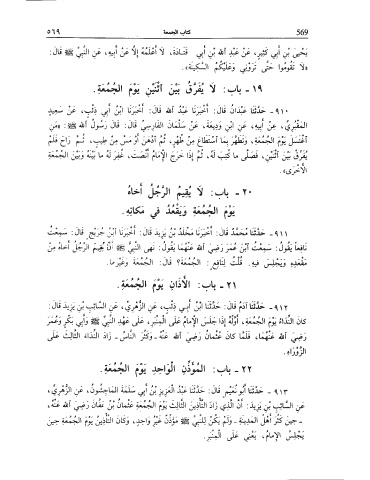 569 كتاب الجمعة ٥٦٩
يَحْيَى بْنِ أَبِي كَثِيرٍ، عَنْ عَبْدِ اللهِ بْنِ أَبِي قَتَادَةَ، لَا أَعْلَمُهُ إِلَّا عَنْ أَبِيهِ، عَنِ النَّبِيِّ ﷺ قَالَ:
«لَا تَقُومُوا حَتَّى تَرَوْنِي وَعَلَيْكُمُ السَّكِينَةُ».
١٩ - باب: لَا يُفَرِّقُ بَيْنَ اثْنَيْنِ يَوْمَ الْجُمُعَةِ.
٩١٠ - حَدَّثَنَا عَبْدَانُ قَالَ: أَخْبَرَنَا عَبْدُ اللهِ قَالَ: أَخْبَرَنَا ابْنُ أَبِي ذِئْبٍ، عَنْ سَعِيدٍ
الْمَقْبُرِيِّ، عَنْ أَبِيهِ، عَنِ ابْنِ وَدِيعَةَ، عَنْ سَلْمَانَ الْفَارِسِيِّ قَالَ: قَالَ رَسُولُ اللهِ ﷺ: «مَنِ
اغْتَسَلَ يَوْمَ الْجُمُعَةِ، وَتَطَهَّرَ بِمَا اسْتَطَاعَ مِنْ طُهْرٍ، ثُمَّ ادَّهَنَ أَوْ مَسَّ مِنْ طِيبٍ، ثُمَّ رَاحَ فَلَمْ
يُفَرِّقْ بَيْنَ اثْنَيْنِ، فَصَلَّى مَا كُتِبَ لَهُ، ثُمَّ إِذَا خَرَجَ الْإِمَامُ أَنْصَتَ، غُفِرَ لَهُ مَا بَيْنَهُ وَبَيْنَ الْجُمُعَةِ
الْأُخْرَى».
٢٠ - باب: لَا يُقِيمُ الرَّجُلُ أَخَاهُ
يَوْمَ الْجُمُعَةِ وَيَقْعُدُ فِي مَكَانِهِ.
٩١١ - حَدَّثَنَا مُحَمَّدٌ قَالَ: أَخْبَرَنَا مَخْلَدُ بْنُ يَزِيدَ قَالَ: أَخْبَرَنَا ابْنُ جُرَيْجٍ قَالَ: سَمِعْتُ
نَافِعاً يَقُولُ: سَمِعْتُ ابْنَ عُمَرَ رَضِيَ اللهُ عَنْهُمَا يَقُولُ: نَهَى النَّبِيُّ ﷺ أَنْ يُقِيمَ الرَّجُلُ أَخَاهُ مِنْ
مَقْعَدِهِ وَيَجْلِسَ فِيهِ. قُلْتُ لِنَافِعٍ: الْجُمُعَةَ؟ قَالَ: الْجُمُعَةَ وَغَيْرَهَا.
٢١ - باب: الْأَذَانِ يَوْمَ الْجُمُعَةِ.
٩١٢ - حَدَّثَنَا آدَمُ قَالَ: حَدَّثَنَا ابْنُ أَبِي ذِئْبٍ، عَنِ الزُّهْرِيِّ، عَنِ السَّائِبِ بْنِ يَزِيدَ قَالَ:
كَانَ النِّدَاءُ يَوْمَ الْجُمُعَةِ، أَوَّلُهُ إِذَا جَلَسَ الْإِمَامُ عَلَى الْمِنْبَرِ، عَلَى عَهْدِ النَّبِيِّ ﷺ وَأَبِي بَكْرٍ وَعُمَرَ
رَضِيَ اللهُ عَنْهُمَا، فَلَمَّا كَانَ عُثْمَانُ رَضِيَ اللهُ عَنْهُ - وَكَثُرَ النَّاسُ - زَادَ النِّدَاءَ الثَّالِثَ عَلَى
الزَّوْرَاءِ.
٢٢ - باب: الْمُؤَذِّنِ الْوَاحِدِ يَوْمَ الْجُمُعَةِ.
٩١٣ - حَدَّثَنَا أَبُو نُعَيْمٍ قَالَ: حَدَّثَنَا عَبْدُ الْعَزِيزِ بْنُ أَبِي سَلَمَةَ الْمَاجِشُونُ، عَنِ الزُّهْرِيِّ،
عَنِ السَّائِبِ بْنِ يَزِيدَ: أَنَّ الَّذِي زَادَ التَّأْذِينَ الثَّالِثَ يَوْمَ الْجُمُعَةِ عُثْمَانُ بْنُ عَفَّانَ رَضِيَ اللهُ عَنْهُ،
- حِينَ كَثُرَ أَهْلُ الْمَدِينَةِ - وَلَمْ يَكُنْ لِلنَّبِيِّ ﷺ مُؤَذِّنٌ غَيْرُ وَاحِدٍ، وَكَانَ التَّأْذِينُ يَوْمَ الْجُمُعَةِ حِينَ
يَجْلِسُ الْإِمَامُ، يَعْنِي عَلَى الْمِنْبَرِ.